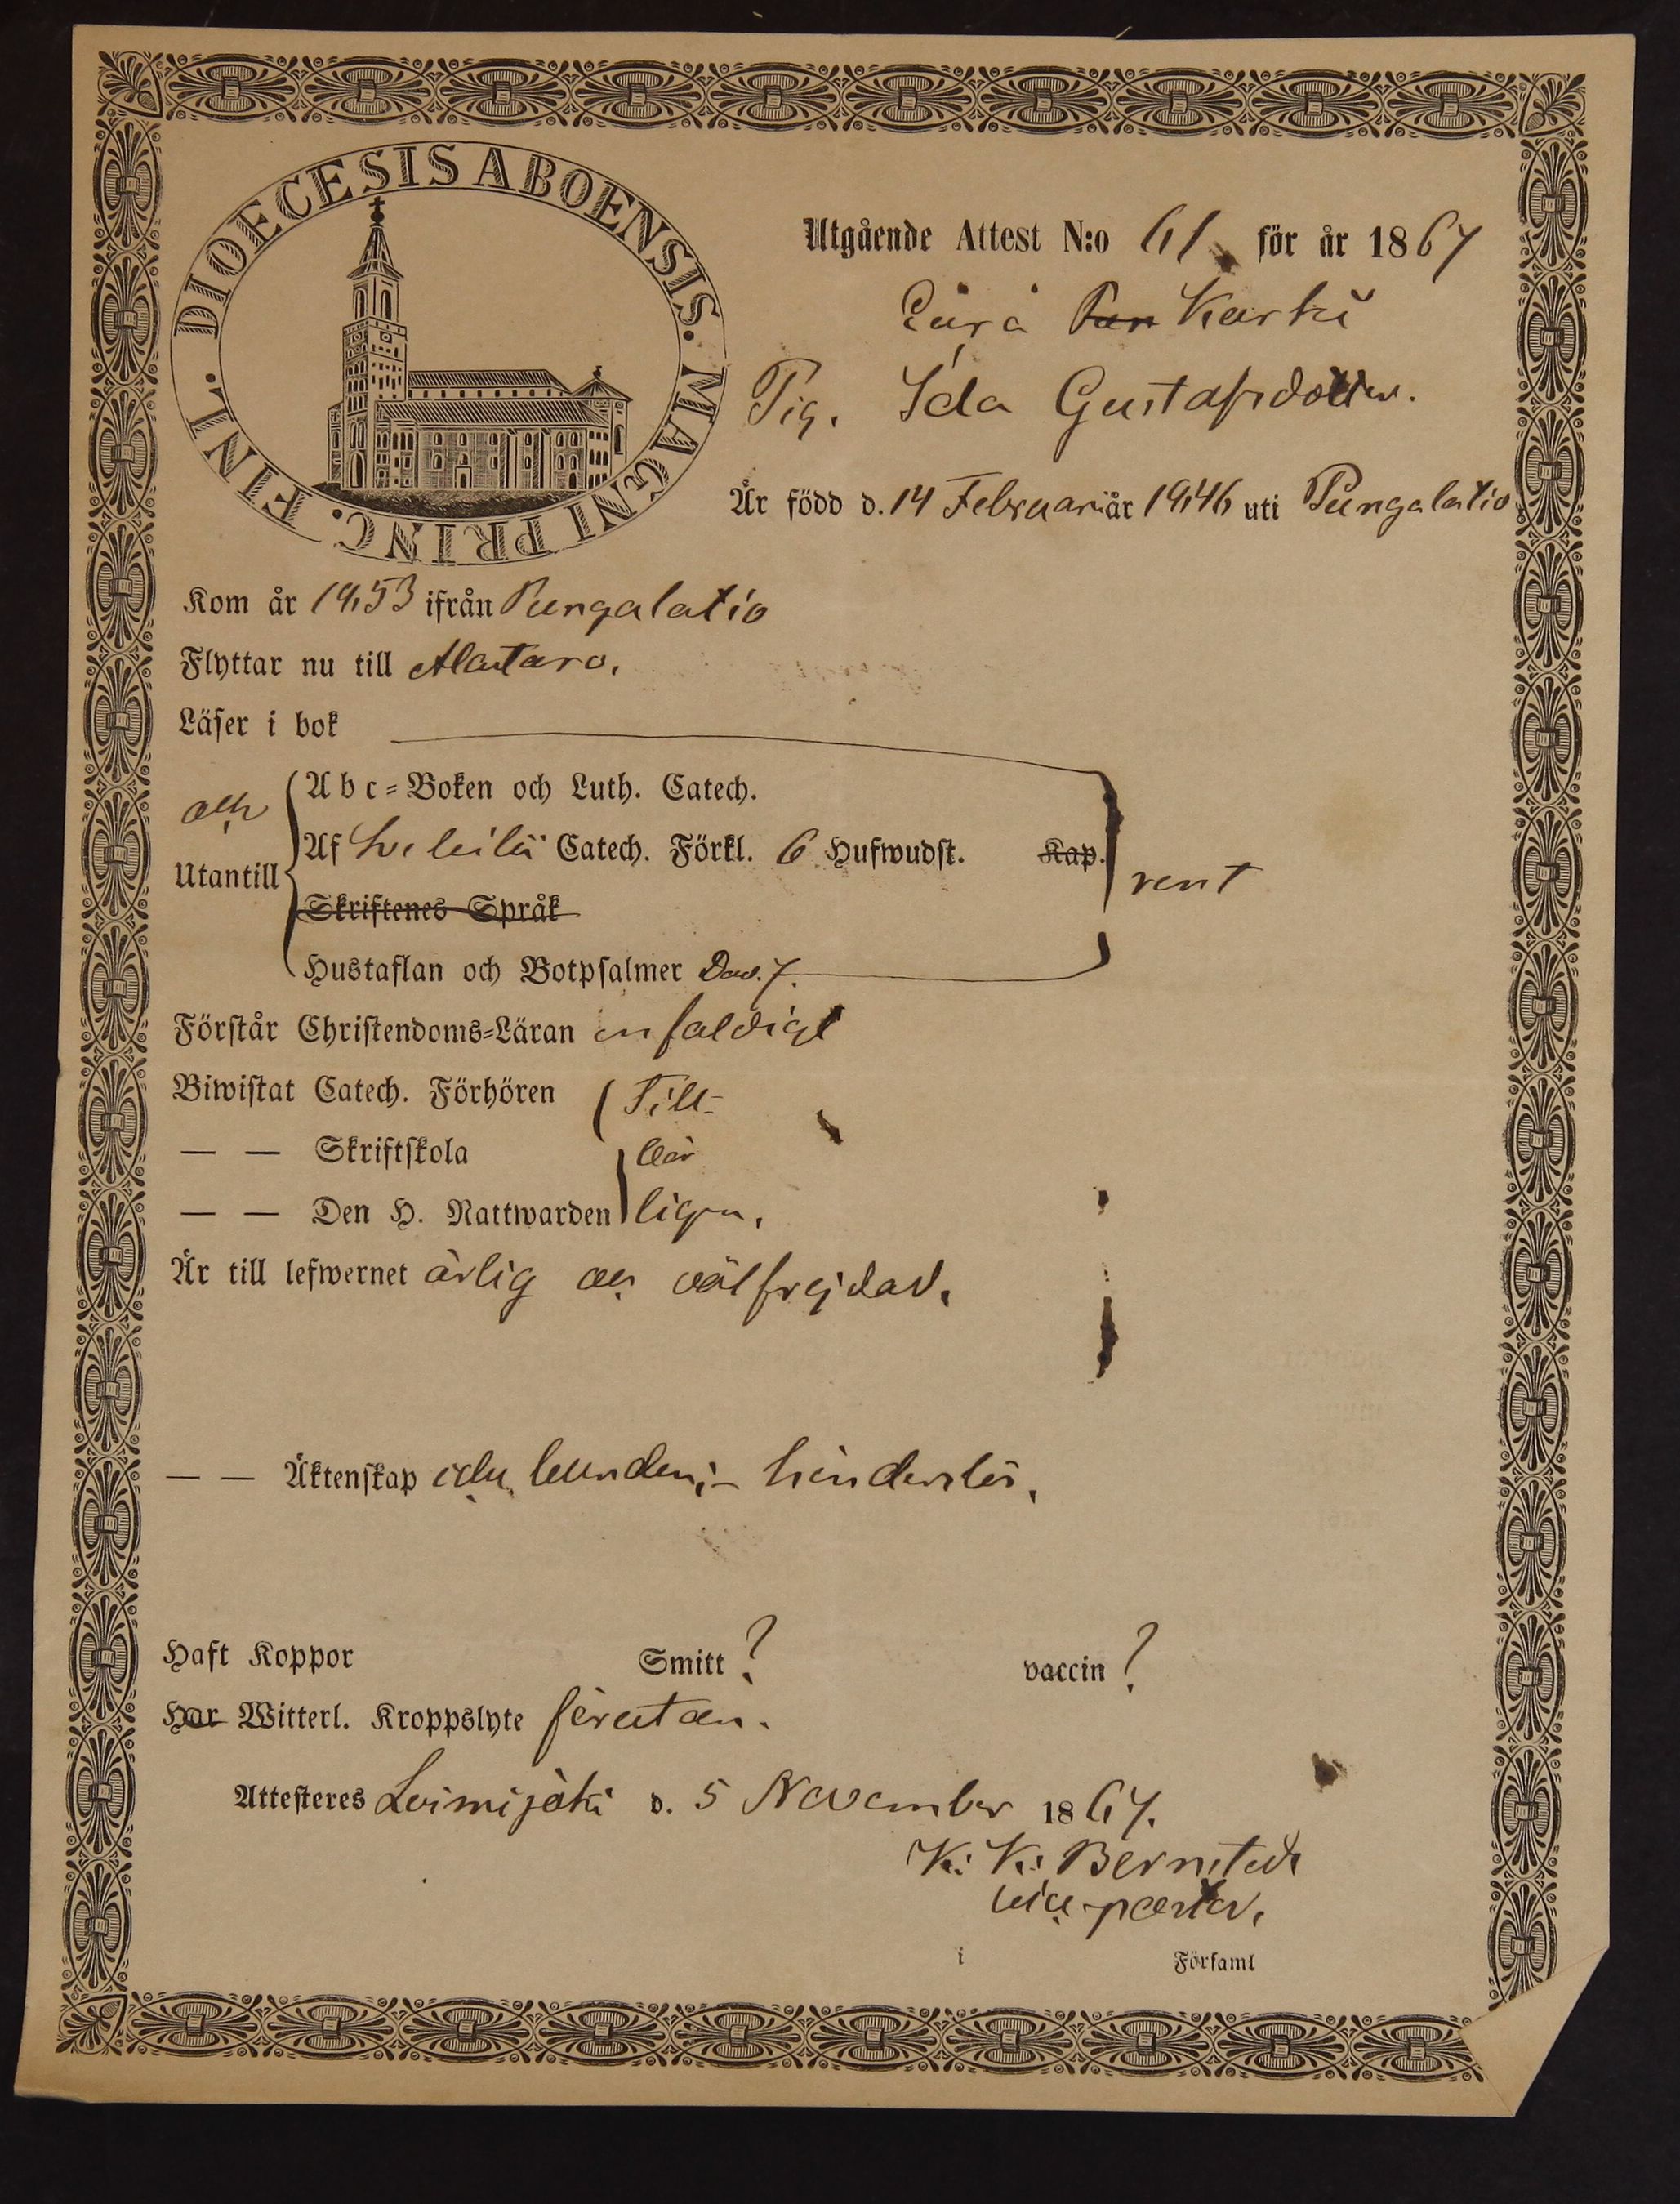 DIOECESIS ABOENSIS. MAGNI PRINC. FINL.
Utgående Attest N:o 61 för år 1867
Karhi
Pig. Ida Gustafsdotter.
Är född d. 14 Februari år 1846 uti Pungalatio
Kom år 1853 ifrån Pungalatio
Flyttar nu till Alastaro.
Läser i bok
och
Utantill
A b c = Boken och Luth. Catech.
Af Svebilii Catech. Förkl. 6 Hufwudst. Kap.
rent
Skriftenes Språk
Hustaflan och Botpsalmer Dav. 7.
Förstår Christendoms=Läran enfaldigt
Biwistat Catech. Förhören Till-
— — Skriftskola bör
— — Den H. Nattwarden ligen.
Är till lefwernet ärlig och välfrejdad.
— — Äktenskap icke bunden; – hinderslös.
Haft Koppor Smitt ? vaccin ?
Har Witterl. Kroppslyte förutan.
Attesteres Loimijoki d. 5 November 1867.
K: K: Bernstedt
vice-pastor.
i Församl